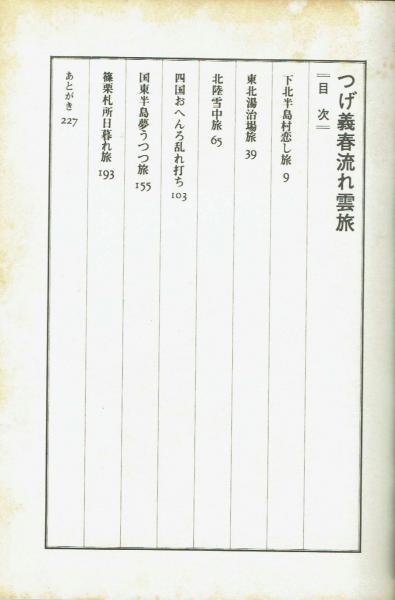 つげ義春流れ雲旅
目次
下北半島村恋し旅 9
東北湯治場旅 39
北陸雪中旅 65
四国おへんろ乱れ打ち 103
国東半島夢うつつ旅 155
篠栗札所日暮れ旅 193
あとがき 227